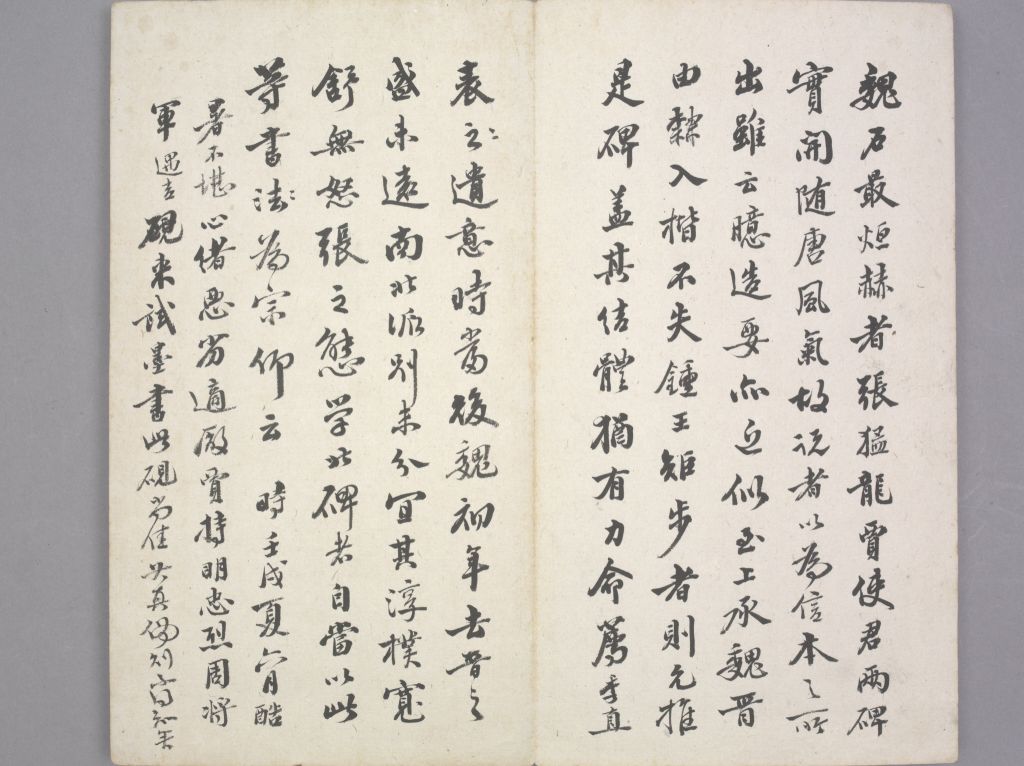 魏石最烜赫者張猛龍賈使君兩碑
實開隨唐風氣故説者以為信本之所
出雖云臆造要亦近似至上承魏晉
由隸入楷不失鍾王矩步者則允推
是碑蓋其結體猶有力命薦季直
表之遺意時當後魏初年去晉之
盛未遠南北派别未分宜其淳樸寬
舒無怒張之態学北碑者自當以此
等書法為宗仰云 時壬戌夏六月酷
暑不堪心緒惡劣適厰賈持明忠烈周將
軍遇吉硯来試墨書此硯尚佳其真偽則知矣